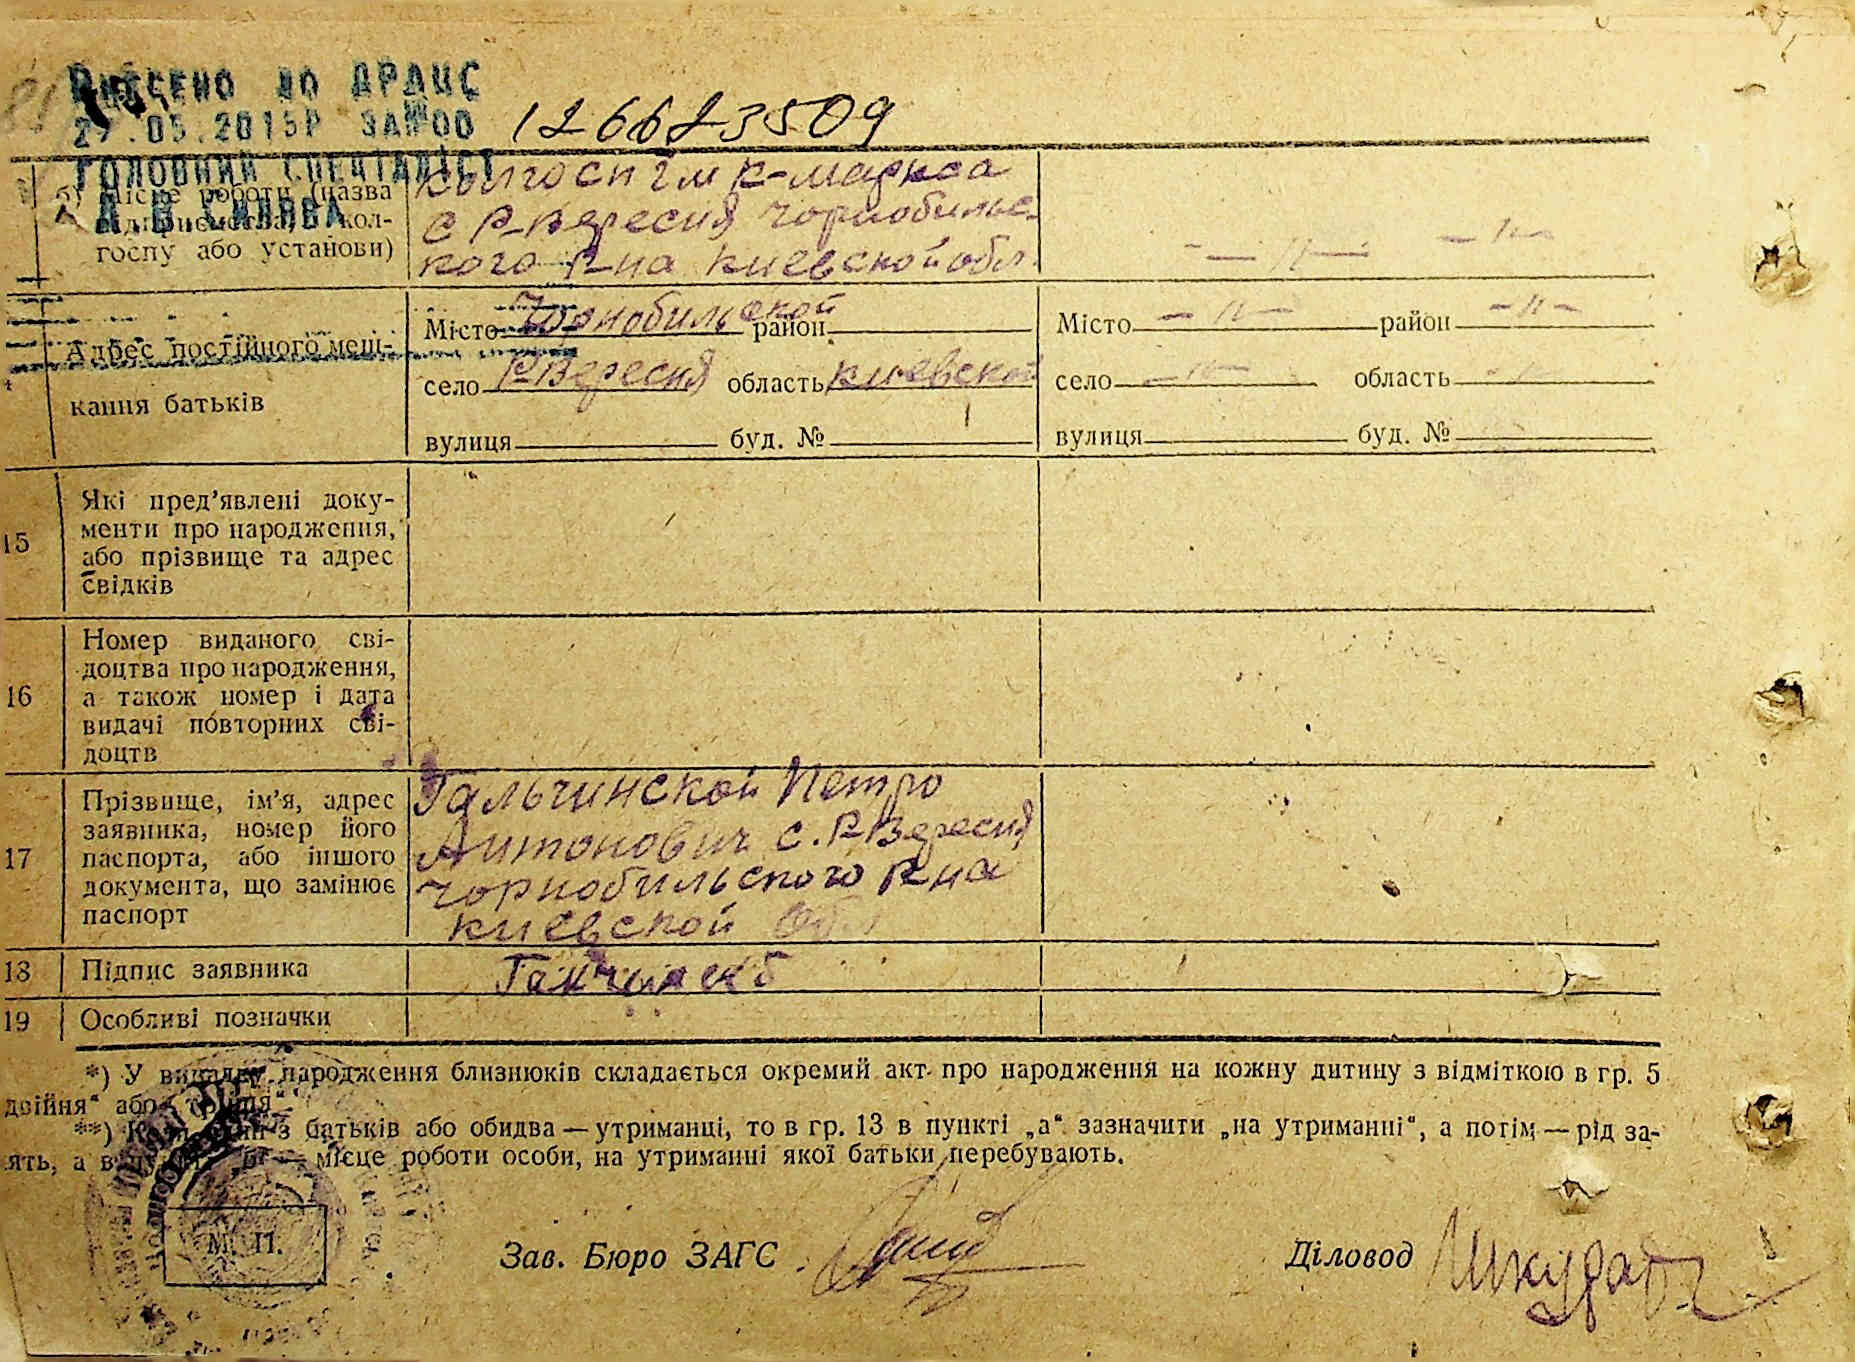 ВНЕСЕНО ДО ДРАЦС
27.05.2015Р ЗА№00 126623509
ГОЛОВНИЙ СПЕЦІАЛІСТ
б) Місце роботи (назва
підприємства, кол-
госпу або установи)
колгосп ім К-маркса
с Р-Вересня Чорнобильс-
кого Р-на Киевской обл.
— " — — " —
Адрес постійного меш-
кання батьків
Місто Чорнобильской район
село Р-Вересня область Киевской
вулиця буд. №
Місто — " — район — " —
село — " — область — " —
вулиця буд. №
15 Які пред'явлені доку-
менти про народження,
або прізвище та адрес
свідків
16 Номер виданого сві-
доцтва про народження,
а також номер і дата
видачі повторних сві-
доцтв
17 Прізвище, ім'я, адрес
заявника, номер його
паспорта, або іншого
документа, що замінює
паспорт
Гальчинской Петро
Антонович с. Р-Вересня
Чорнобильского Р-на
Киевской Обл
18 Підпис заявника
19 Особливі позначки
*) У випадку народження близнюків складається окремий акт про народження на кожну дитину з відміткою в гр. 5
двійня“ або „трійня“.
**) Коли один з батьків або обидва — утриманці, то в гр. 13 в пункті „а“ зазначити „на утриманні“, а потім — рід за-
ять, а в пункті „б“ — місце роботи особи, на утриманні якої батьки перебувають.
М. П.
Зав. Бюро ЗАГС
Діловод Шкурат